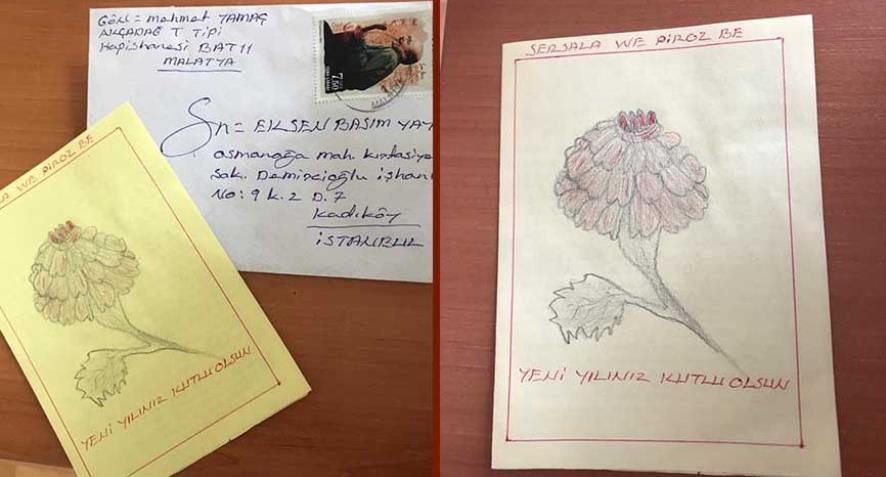 GÖN = Mehmet YAMAÇ
AKÇADAĞ T TİPİ
Hapishanesi BAT 11
MALATYA
7,50
Sn = EKSEN BASIM YAY
osmanağa mah. kırtasiye
Sok. Demircioğlu işhanı
No: 9 k. 2 D. 7
Kadıköy
İSTANBUL
LA WE PİROZ BE
YENİ YILINIZ KUTLU OLSUN
SERSALA WE PİROZ BE
YENİ YILINIZ KUTLU OLSUN